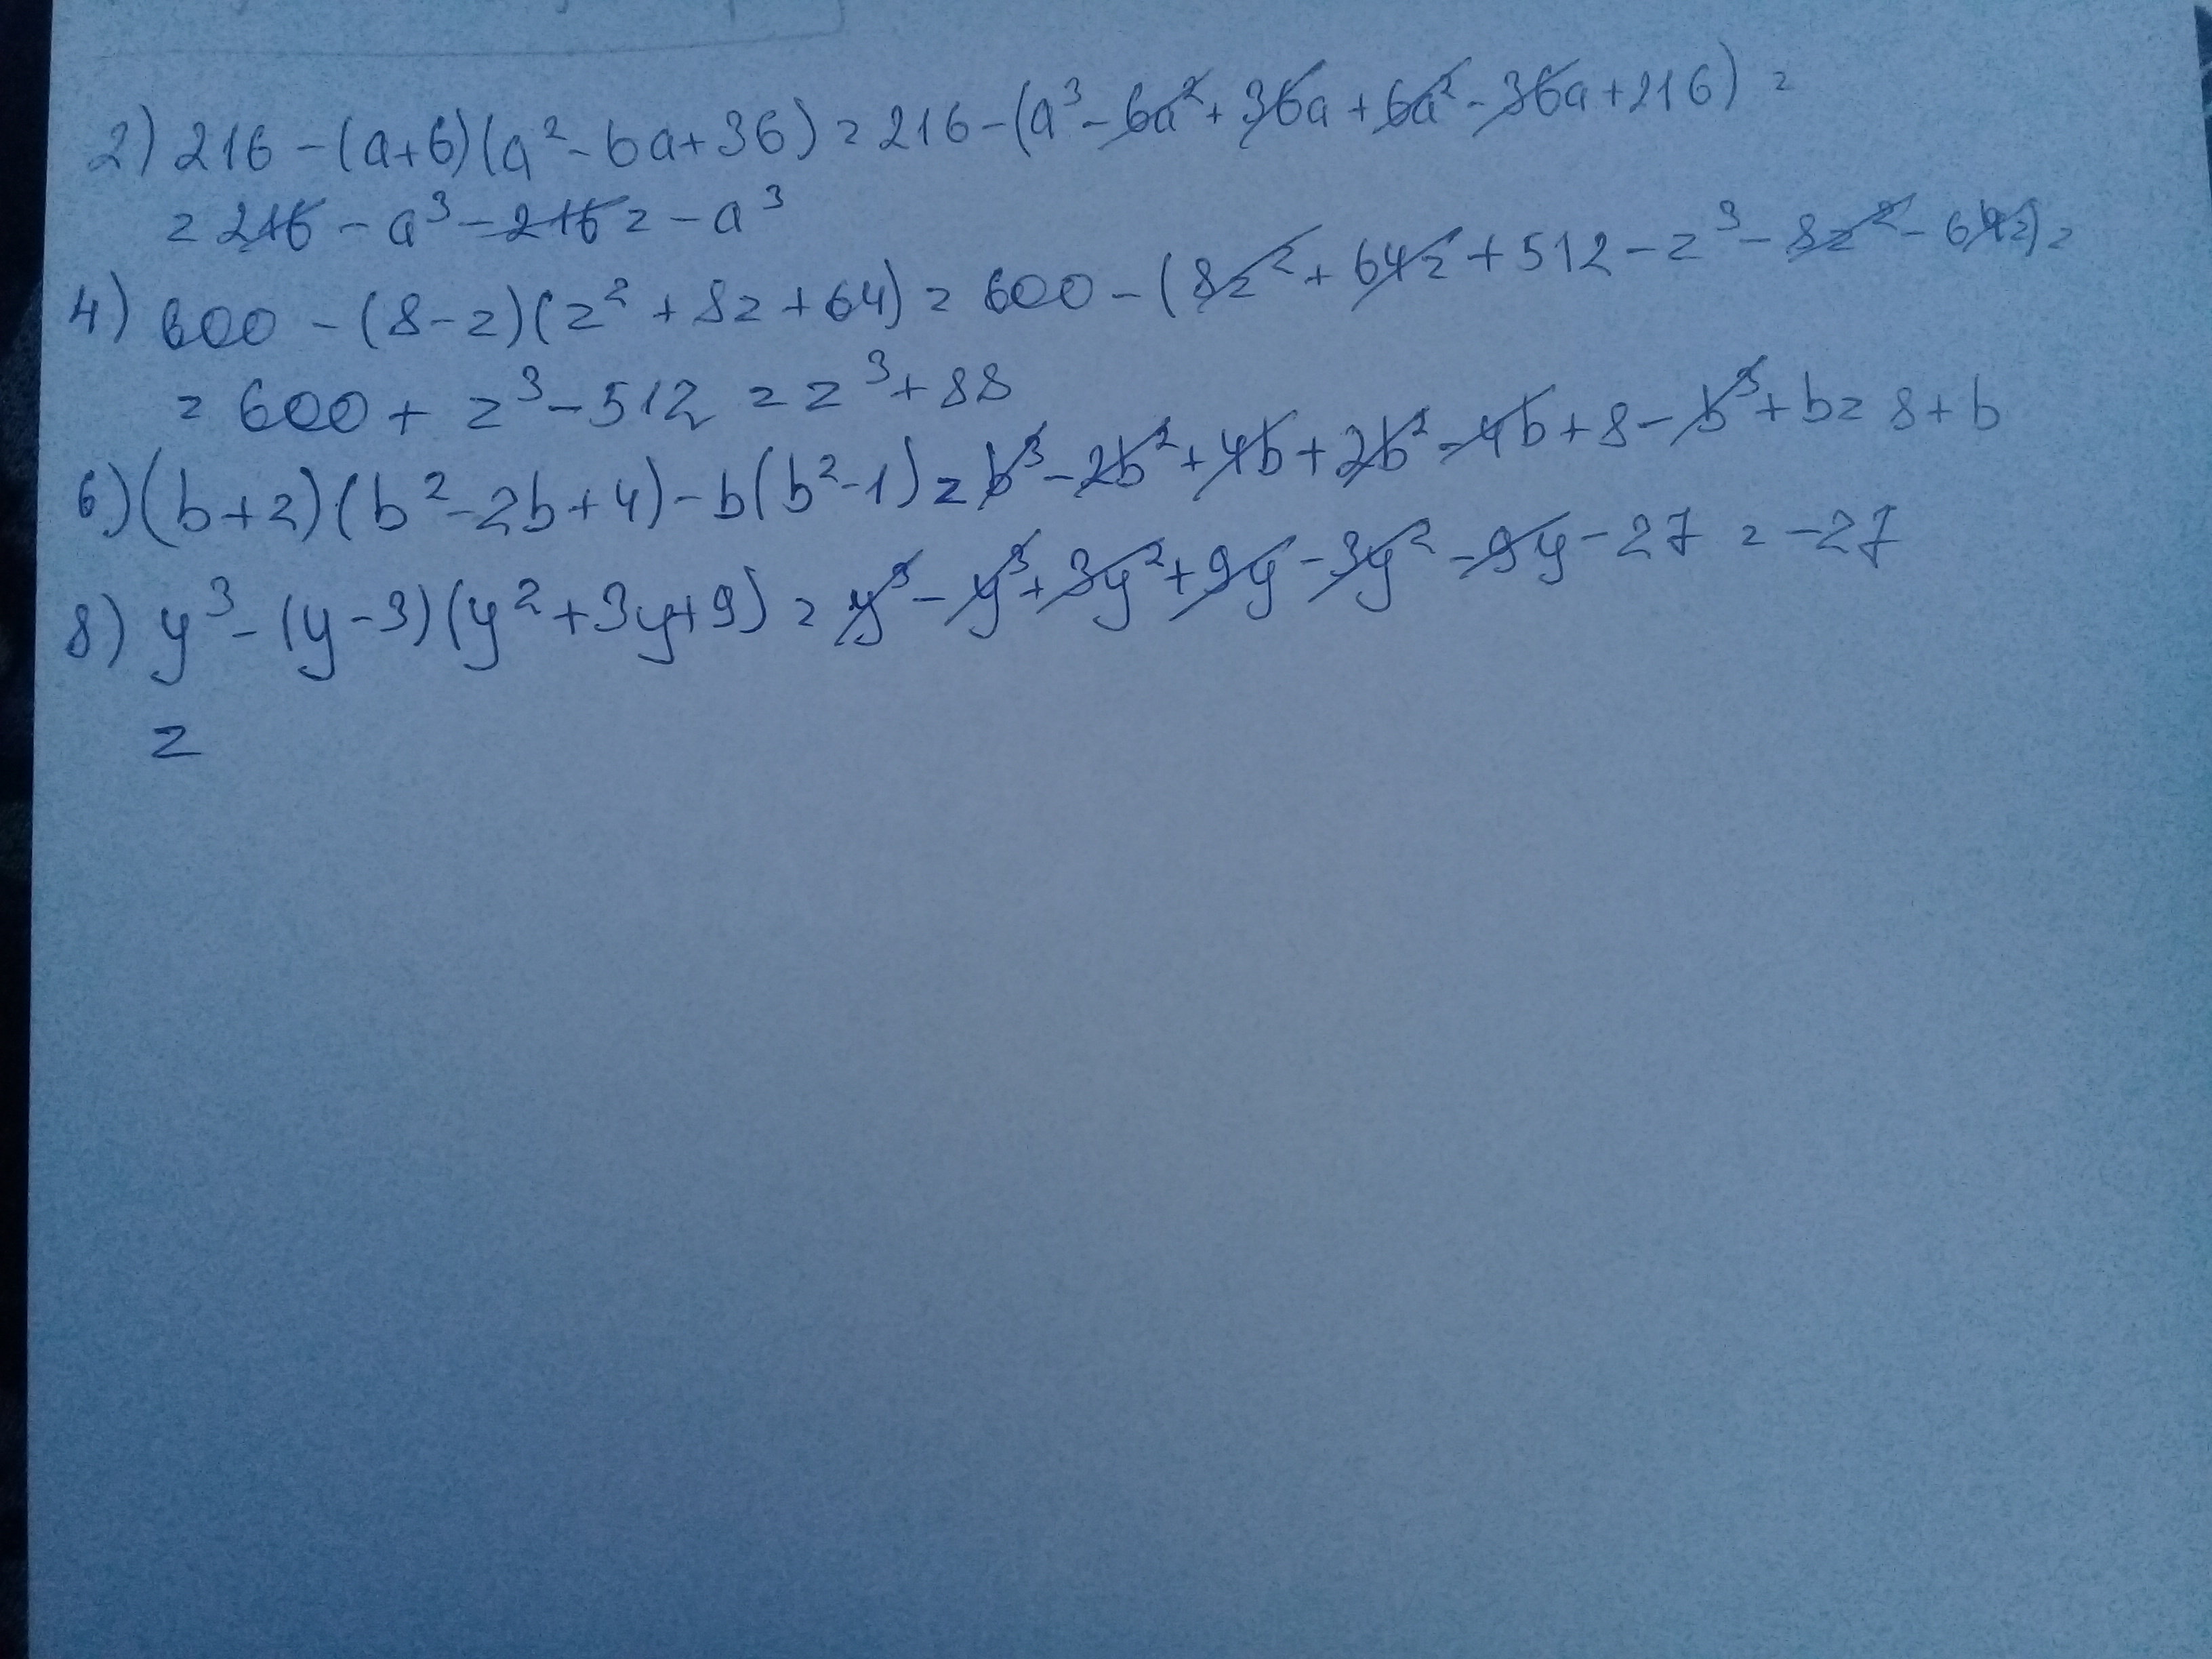 2) 216 - (a+6)(a² - 6a + 36) = 216 - (a³ - 6a² + 36a + 6a² - 36a + 216) =
= 216 - a³ - 216 = - a³
4) 600 - (8 - z)(z² + 8z + 64) = 600 - (8z² + 64z + 512 - z³ - 8z² - 64z) =
= 600 + z³ - 512 = z³ + 88
6) (b+2)(b² - 2b + 4) - b(b² - 1) = b³ - 2b² + 4b + 2b² - 4b + 8 - b³ + b = 8 + b
8) y³ - (y - 3)(y² + 3y + 9) = y³ - y³ + 3y² + 9y - 3y² - 9y - 27 = -27
=